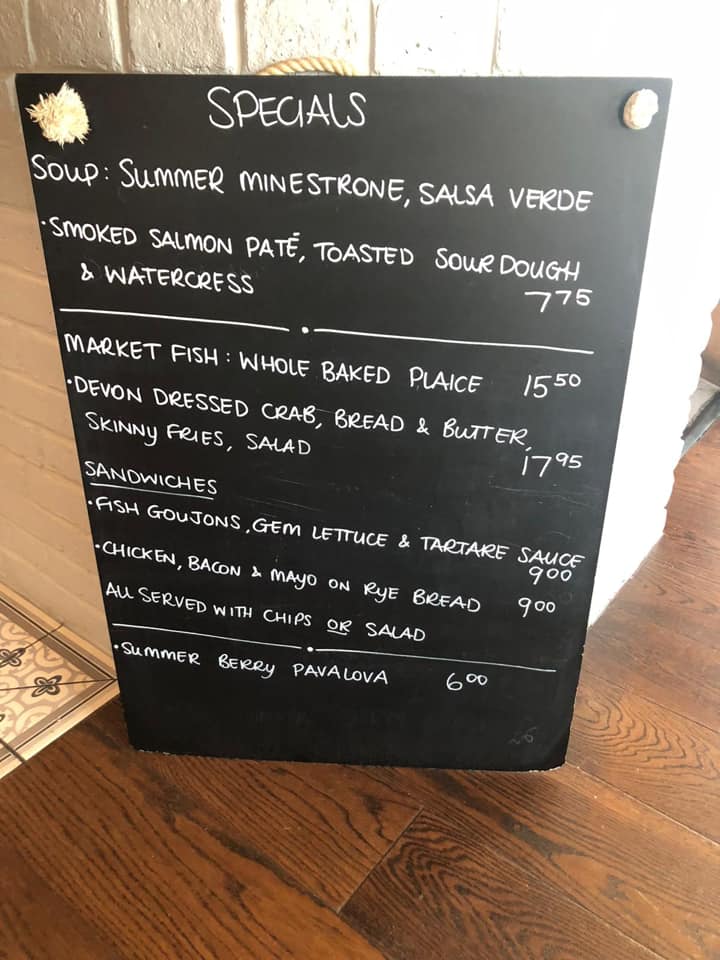 SPECIALS
SOUP: SUMMER MINESTRONE, SALSA VERDE
·SMOKED SALMON PATÉ, TOASTED SOUR DOUGH
& WATERCRESS
7 75
MARKET FISH: WHOLE BAKED PLAICE 15 50
·DEVON DRESSED CRAB, BREAD & BUTTER,
SKINNY FRIES, SALAD
17 95
SANDWICHES
·FISH GOUJONS, GEM LETTUCE & TARTARE SAUCE
9 00
·CHICKEN, BACON & MAYO ON RYE BREAD 9 00
ALL SERVED WITH CHIPS OR SALAD
·SUMMER BERRY PAVALOVA 6 00